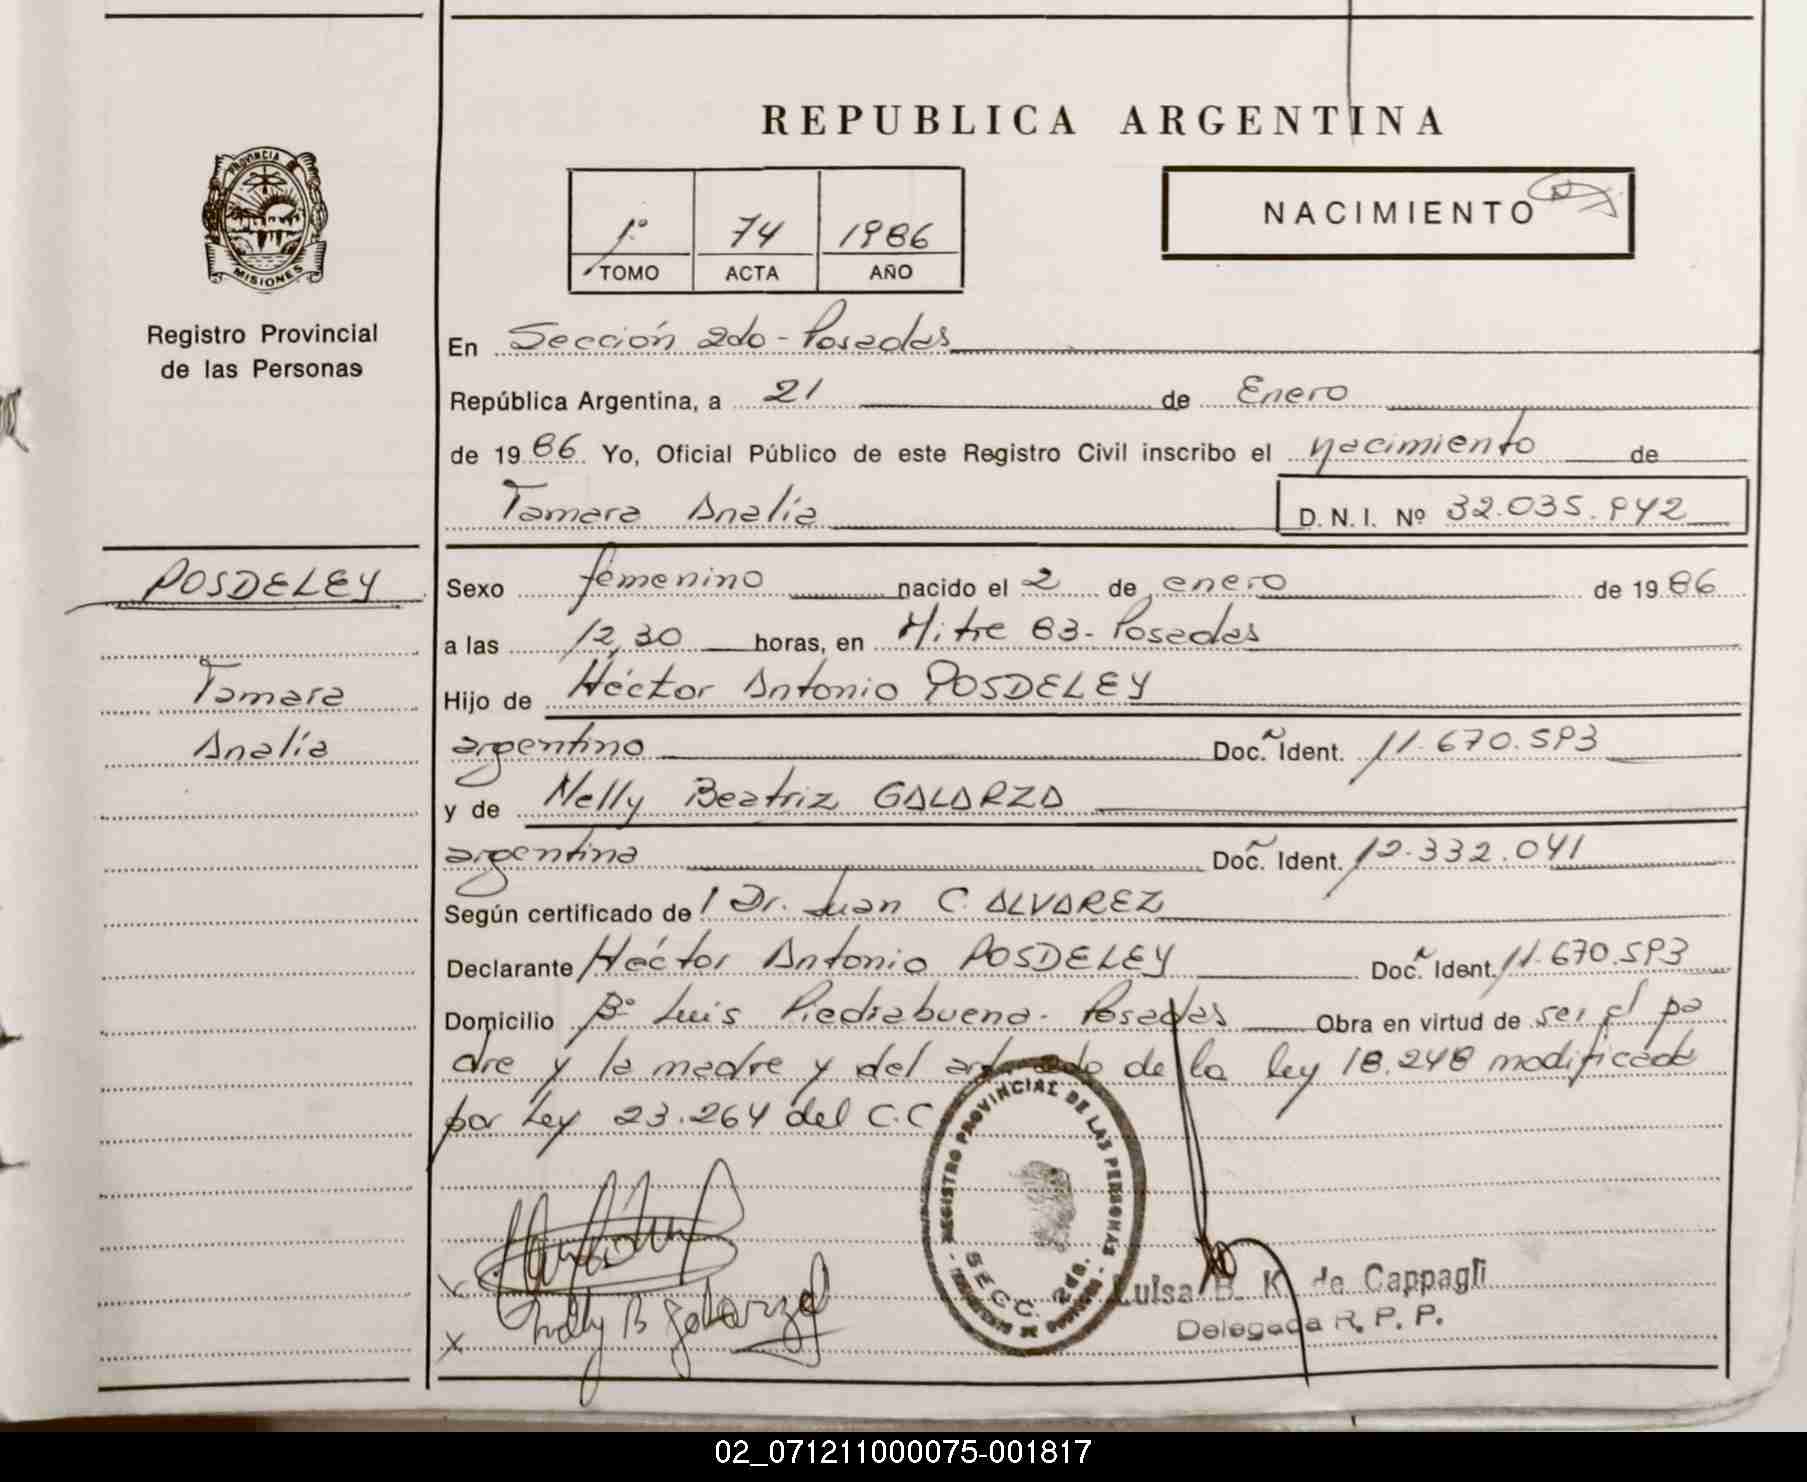 REPUBLICA ARGENTINA
PROVINCIA
MISIONES
Registro Provincial
de las Personas
1º 74 1986
TOMO ACTA AÑO
NACIMIENTO
En Sección 2da - Posadas
República Argentina, a 21 de Enero
de 1986 Yo, Oficial Público de este Registro Civil inscribo el nacimiento de
Tamara Analía D. N. I. Nº 32.035.942
POSDELEY
Tamara
Analía
Sexo femenino nacido el 2 de enero de 1986
a las 12,30 horas, en Mitre 83 - Posadas
Hijo de Héctor Antonio POSDELEY
argentino Doc. Ident. 11.670.593
y de Nelly Beatriz GALARZA
argentina Doc. Ident. 12.332.041
Según certificado de Dr. Juan C. ALVAREZ
Declarante Héctor Antonio POSDELEY Doc. Ident. 11.670.593
Domicilio Bº Luis Piedrabuena - Posadas Obra en virtud de ser el pa
dre y la madre y del de la ley 18.248 modificada
por Ley 23.264 del C.C
REGISTRO PROVINCIAL DE LAS PERSONAS
SECC. 2da.
Nelly B Galarza
Luisa B. K. de Cappagli
Delegada R. P. P.
02_071211000075-001817